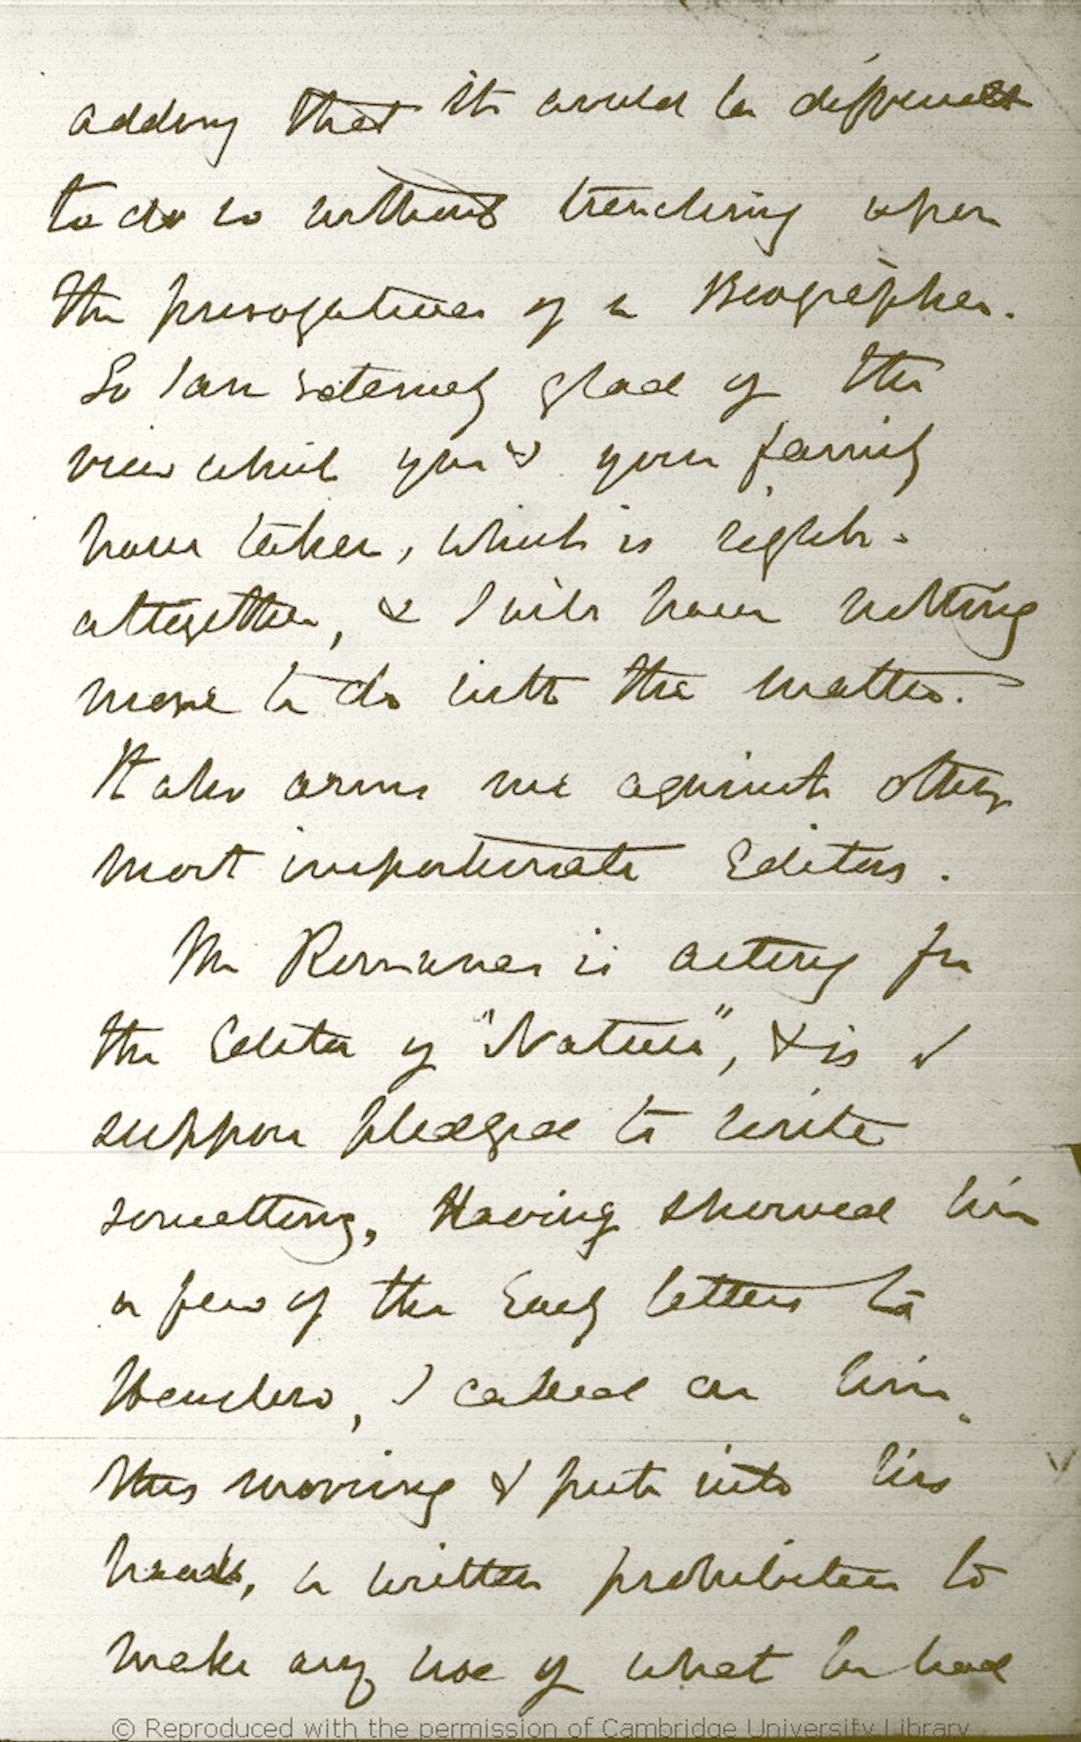 adding that it would be difficult
to do so without trenching upon
the prerogatives of a Biographer.
So I am extremely glad of the
view which you & your family
have taken, which is right
altogether, & I will have nothing
more to do with the matter.
It also arms me against other
most importunate Editors.
Mr Romanes is acting for
the Editor of "Nature", & is I
suppose pledged to write
something, Having showed him
a few of the early letters to
Henslow, I called on him
this morning & put into his
hands, a written prohibition to
make any use of what he had
© Reproduced with the permission of Cambridge University Library